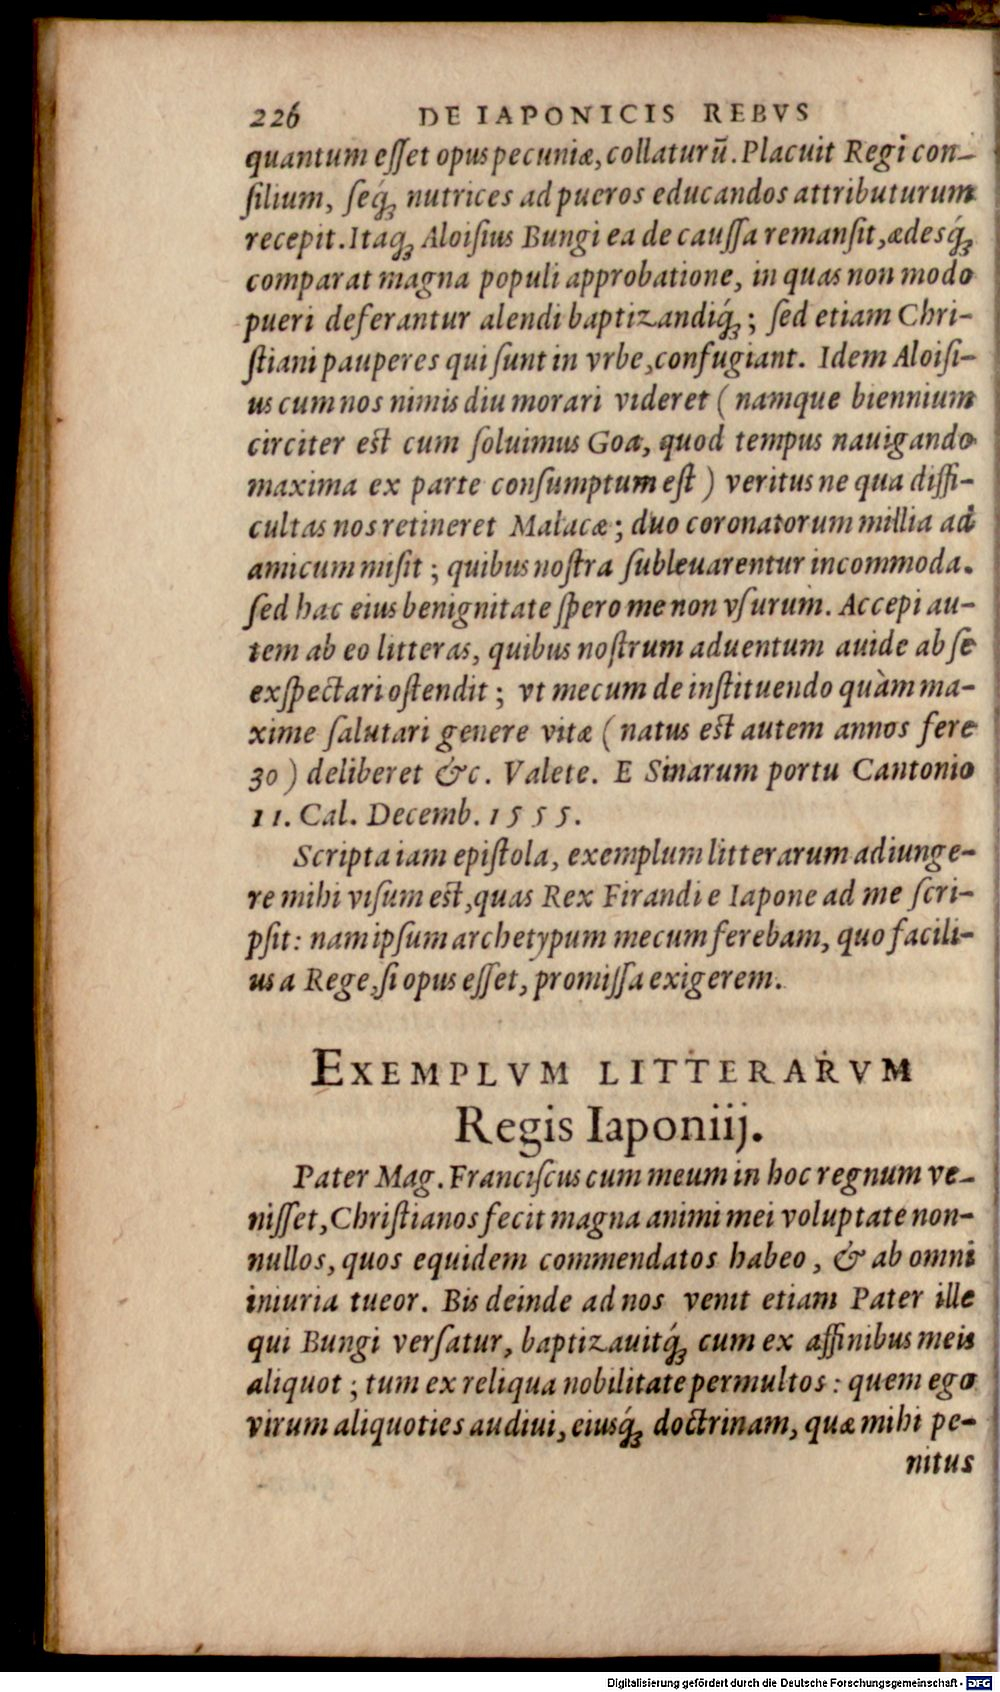 226 DE IAPONICIS REBVS
quantum eſſet opus pecuniæ, collaturū. Placuit Regi con-
ſilium, ſeq́ꝫ nutrices ad pueros educandos attributurum
recepit. Itaqꝫ Aloiſius Bungi ea de cauſſa remanſit, ædesq́ꝫ
comparat magna populi approbatione, in quas non modo
pueri deferantur alendi baptizandiq́ꝫ; ſed etiam Chri-
ſtiani pauperes qui ſunt in vrbe, confugiant. Idem Aloiſi-
us cum nos nimis diu morari videret ( namque biennium
circiter est cum ſoluimus Goa, quod tempus nauigando
maxima ex parte conſumptum eſt ) veritus ne qua diffi-
cultas nos retineret Malacæ; duo coronatorum millia ad
amicum miſit; quibus noſtra ſubleuarentur incommoda.
ſed hac eius benignitate ſpero me non vſurum. Accepi au-
tem ab eo litteras, quibus noſtrum aduentum auide ab ſe
exſpectari oſtendit; vt mecum de inſtituendo quàm ma-
xime ſalutari genere vitæ ( natus est autem annos fere
30 ) deliberet &c. Valete. E Sinarum portu Cantonio
11. Cal. Decemb. 1555.
Scripta iam epiſtola, exemplum litterarum adiunge-
re mihi viſum est, quas Rex Firandi e Iapone ad me ſcri-
pſit: nam ipſum archetypum mecum ferebam, quo facili-
us a Rege, ſi opus eſſet, promiſſa exigerem.
EXEMPLVM LITTERARVM
Regis Iaponiij.
Pater Mag. Franciſcus cum meum in hoc regnum ve-
niſſet, Chriſtianos fecit magna animi mei voluptate non-
nullos, quos equidem commendatos habeo, & ab omni
iniuria tueor. Bis deinde ad nos venit etiam Pater ille
qui Bungi verſatur, baptizauitq́ꝫ cum ex affinibus meis
aliquot; tum ex reliqua nobilitate permultos: quem ego
virum aliquoties audiui, eiusq́ꝫ doctrinam, quæ mihi pe-
nitus
Digitalisierung gefördert durch die Deutsche Forschungsgemeinschaft - DFG